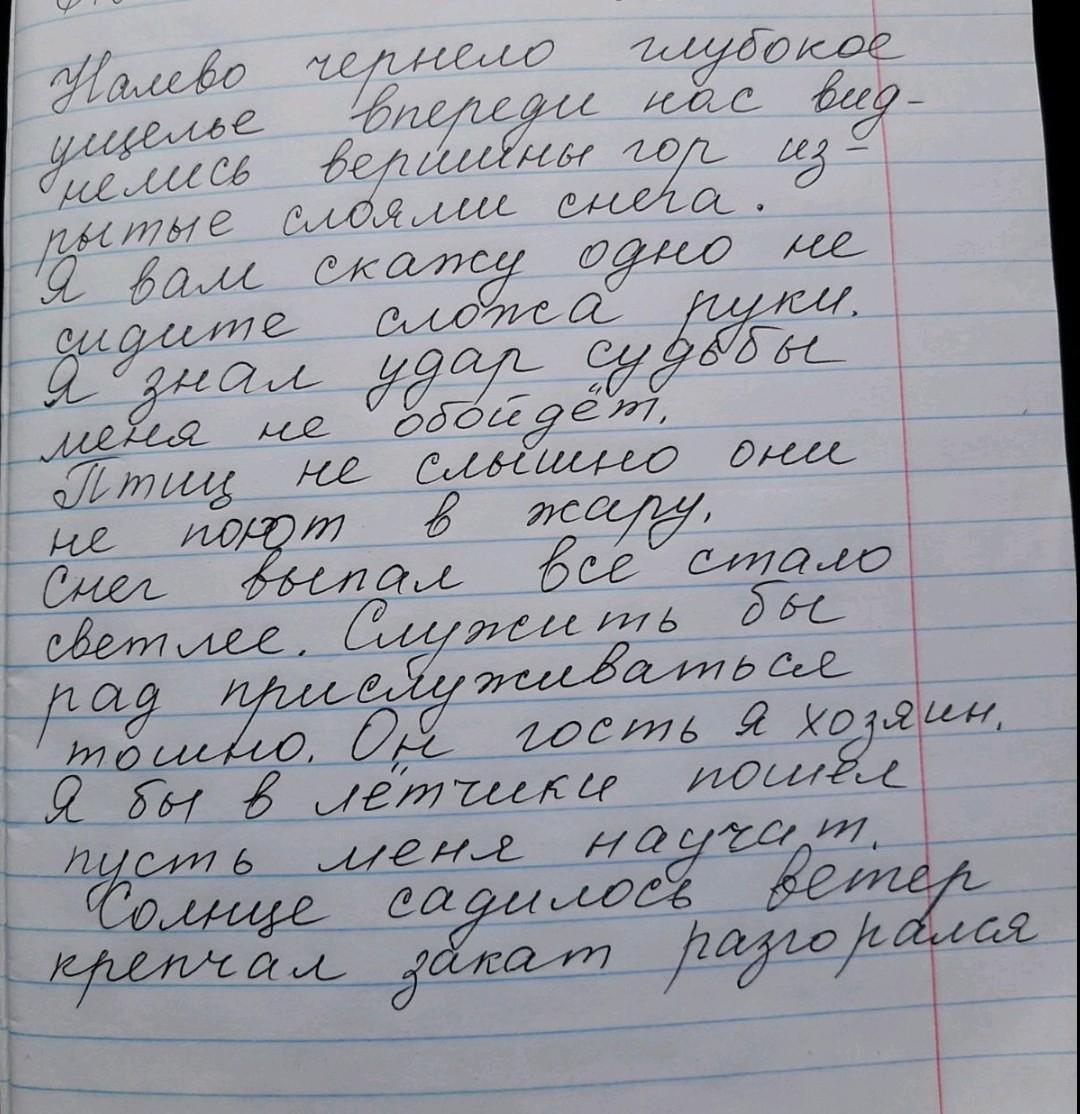 Налево чернело глубокое
ущелье впереди нас вид-
нелись вершины гор из-
рытые слоями снега.
Я вам скажу одно не
сидите сложа руки.
Я знал удар судьбы
меня не обойдёт.
Птиц не слышно они
не поют в жару.
Снег выпал все стало
светлее. Служить бы
рад прислуживаться
тошно. Он гость я хозяин.
Я бы в лётчики пошёл
пусть меня научат.
Солнце садилось ветер
крепчал закат разгорался